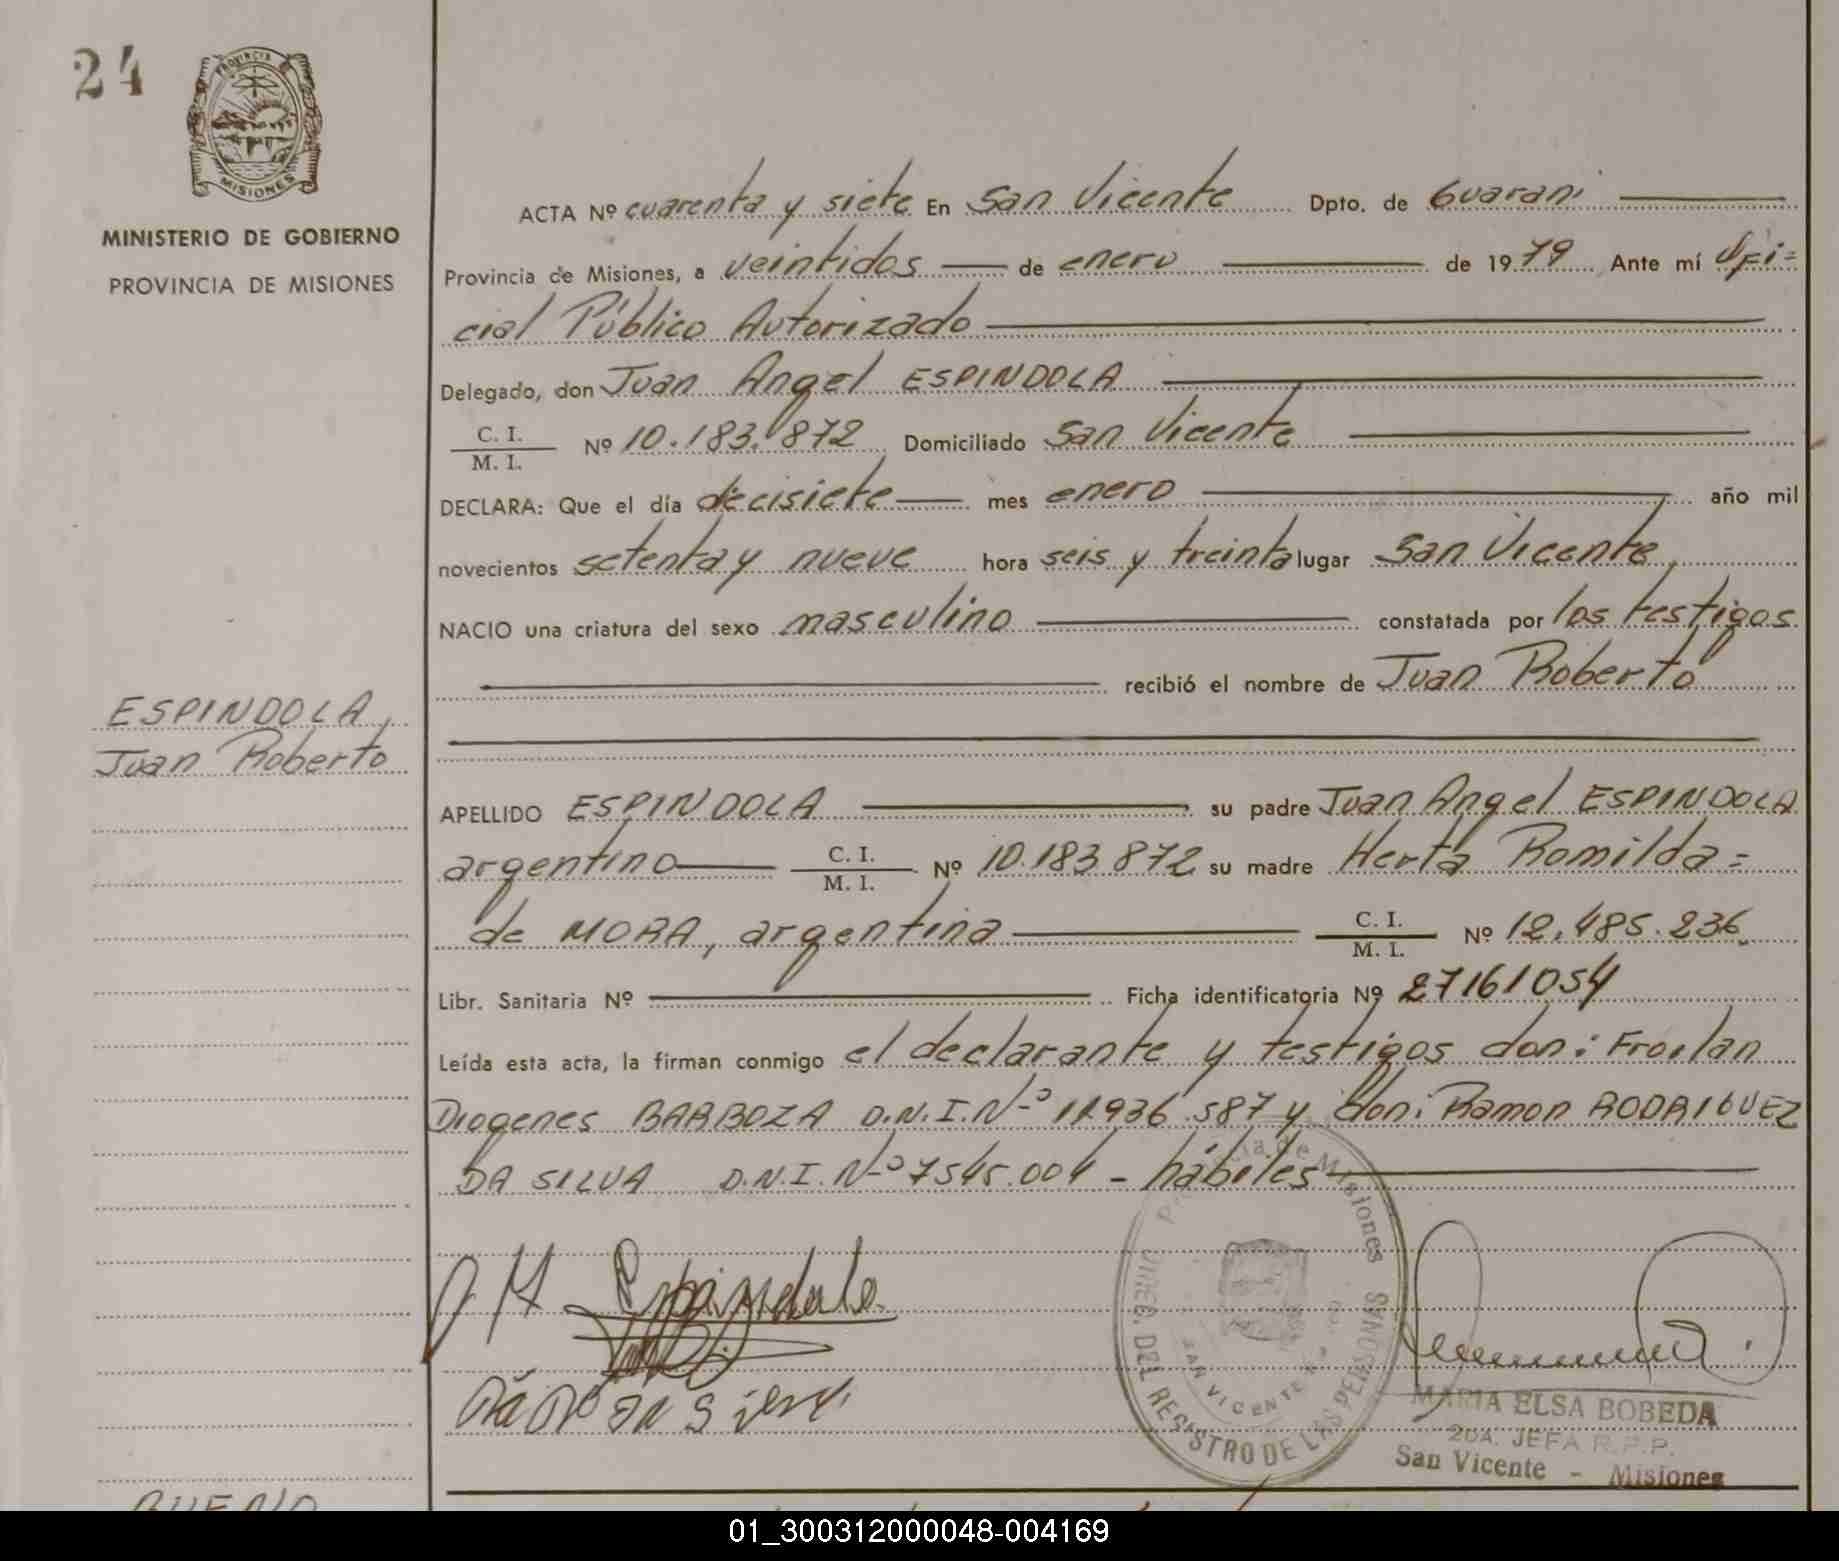 24
PROVINCIA
MISIONES
MINISTERIO DE GOBIERNO
PROVINCIA DE MISIONES
ESPINDOLA,
Juan Roberto
ACTA Nº cuarenta y siete En San Vicente Dpto. de Guaraní
Provincia de Misiones, a veintidos de enero de 1979 Ante mí Ofi=
cial Público Autorizado
Delegado, don Juan Angel ESPINDOLA
C. I.
M. I. Nº 10.183.872 Domiciliado San Vicente
DECLARA: Que el día diecisiete mes enero año mil
novecientos setenta y nueve hora seis y treinta lugar San Vicente,
NACIO una criatura del sexo masculino constatada por los testigos
recibió el nombre de Juan Roberto
APELLIDO ESPINDOLA su padre Juan Angel ESPINDOLA
argentino C. I. M. I. Nº 10.183.872 su madre Herta Romilda=
de MORA, argentina C. I. M. I. Nº 12.485.236
Libr. Sanitaria Nº Ficha identificatoria Nº 27161054
Leída esta acta, la firman conmigo el declarante y testigos don: Froilan
Diogenes BARBOZA D.N.I.Nº 11.936.587 y don: Ramon RODRIGUEZ
DA SILVA D.N.I.Nº 7.545.004 - hábiles
J A Espindola
Provincia de Misiones
DIREC. DEL REGISTRO DE LAS PERSONAS
SAN VICENTE
MARIA ELSA BOBEDA
2DA. JEFA R.P.P.
San Vicente - Misiones
BUENO
01_300312000048-004169